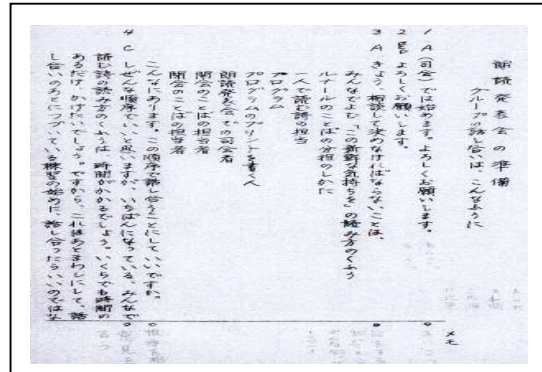 朗読発表会の準備
グループの話し合いは、こんなふうに
1 A(司会)では始めます。よろしくお願いします。
2 よろしくお願いします。
3 A きょう、相談して決めなければならないことは、
みんなでよむ「この新鮮な気持ちを」の読み方のくふう
ルナールのことばの分担のしかた
一人で読む詩の担当
プログラム
プログラムのプリントを書く人
朗読発表会での司会者
開会のことばの担当者
閉会のことばの担当者
こんなにあります。この順序で話し合うことにしていいですか。
4 C しぜんな順序でいいと思いますが、いちばんになっている、みんなで
読む詩の読み方のくふうは、時間がかかるでしょう。いくらでも時間の
あるだけ、かけたいでしょう。ですから、これはあとまわしにして、話
し合いのあとにつづいている練習の始めに、話し合ったらいいのではな
メモ